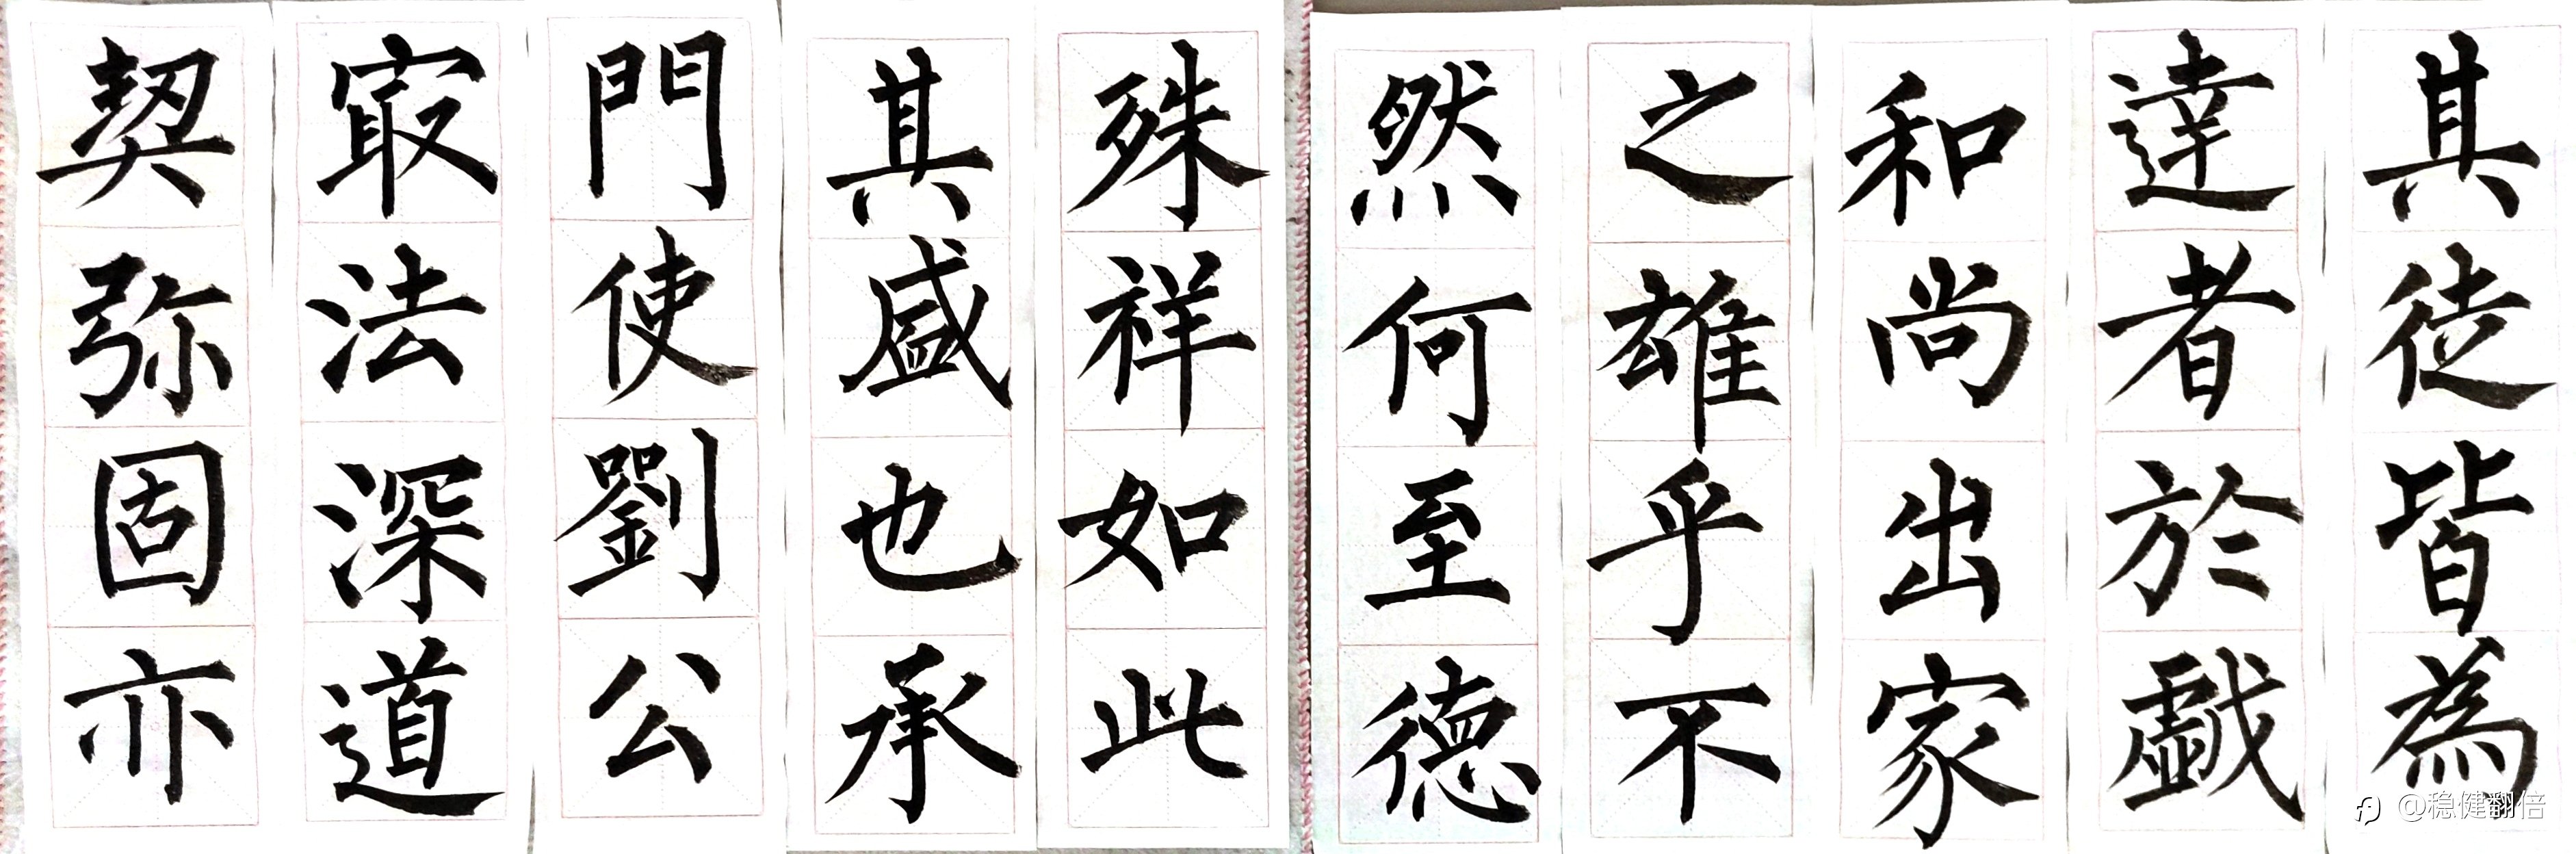 其徒皆為
達者於戯
和尚出家
之雄乎不
然何至德
殊祥如此
其盛也承
門使劉公
冣法深道
契弥固亦
@稳健翻倍